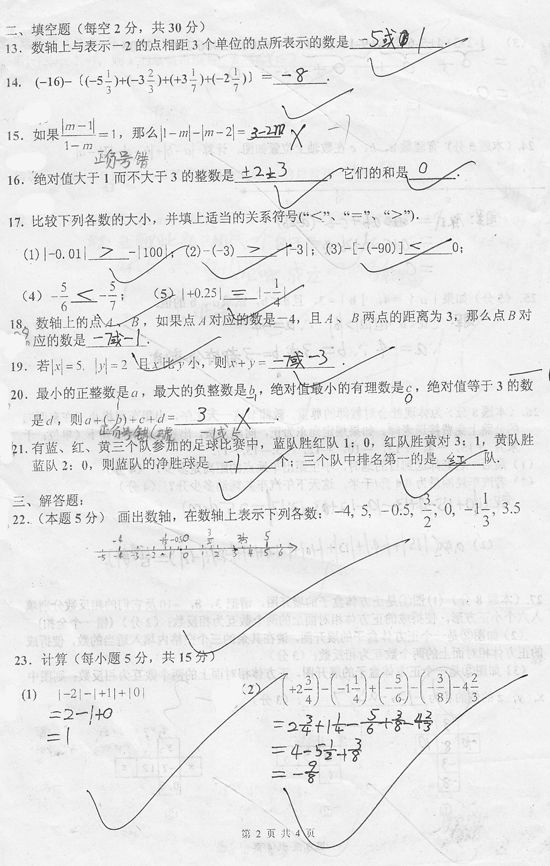 二、填空题（每空2分，共30分）
13. 数轴上与表示－2的点相距3个单位的点所表示的数是 -5或1 .
14. (−16)−〔(−5 1/3)+(−3 2/3)+(+3 1/7)+(−2 1/7)〕＝ -8 .
15. 如果|m−1|/(1−m)=1，那么|1−m|−|m−2|= 3-2m × -1
正负号错
16. 绝对值大于1而不大于3的整数是 ±2±3 ，它们的和是 0 .
17. 比较下列各数的大小，并填上适当的关系符号(“<”、“=”、“>”).
(1)|−0.01| > −|100|; (2)−(−3) > |−3|; (3)−[−(−90)] ≤ 0;
(4) −5/6 < −5/7; (5) |+0.25| = |−1/4|
18、数轴上的点A、B，如果点A对应的数是−4，且A、B两点的距离为3，那么点B对
应的数是 -7或-1 .
19. 若|x|=5. |y|=2 且x比y小，则x+y = -7或-3 .
20. 最小的正整数是a，最大的负整数是b，绝对值最小的有理数是c，绝对值等于3的数
是d，则a+(−b)+c+d= 3 ×
正负号错
21. 有蓝、红、黄三个队参加的足球比赛中，蓝队胜红队1：0，红队胜黄对3：1，黄队胜
蓝队2：0，则蓝队的净胜球是 -1 个；三个队中排名第一的是 红 队.
三、解答题:
22.（本题5分） 画出数轴，在数轴上表示下列各数： −4, 5, −0.5, 3/2, 0, −1 1/3, 3.5
23. 计算（每小题5分，共15分）
(1) |−2|−|+1|+|0|
=2-1+0
=1
（2）(+2 3/4)−(−1 1/4)+(−5/6)−(−3/8)−4 2/3
=2 3/4+1 1/4-5/6+3/8-4 2/3
=4-5 1/2+3/8
=-9/8
第 2 页 共 4 页